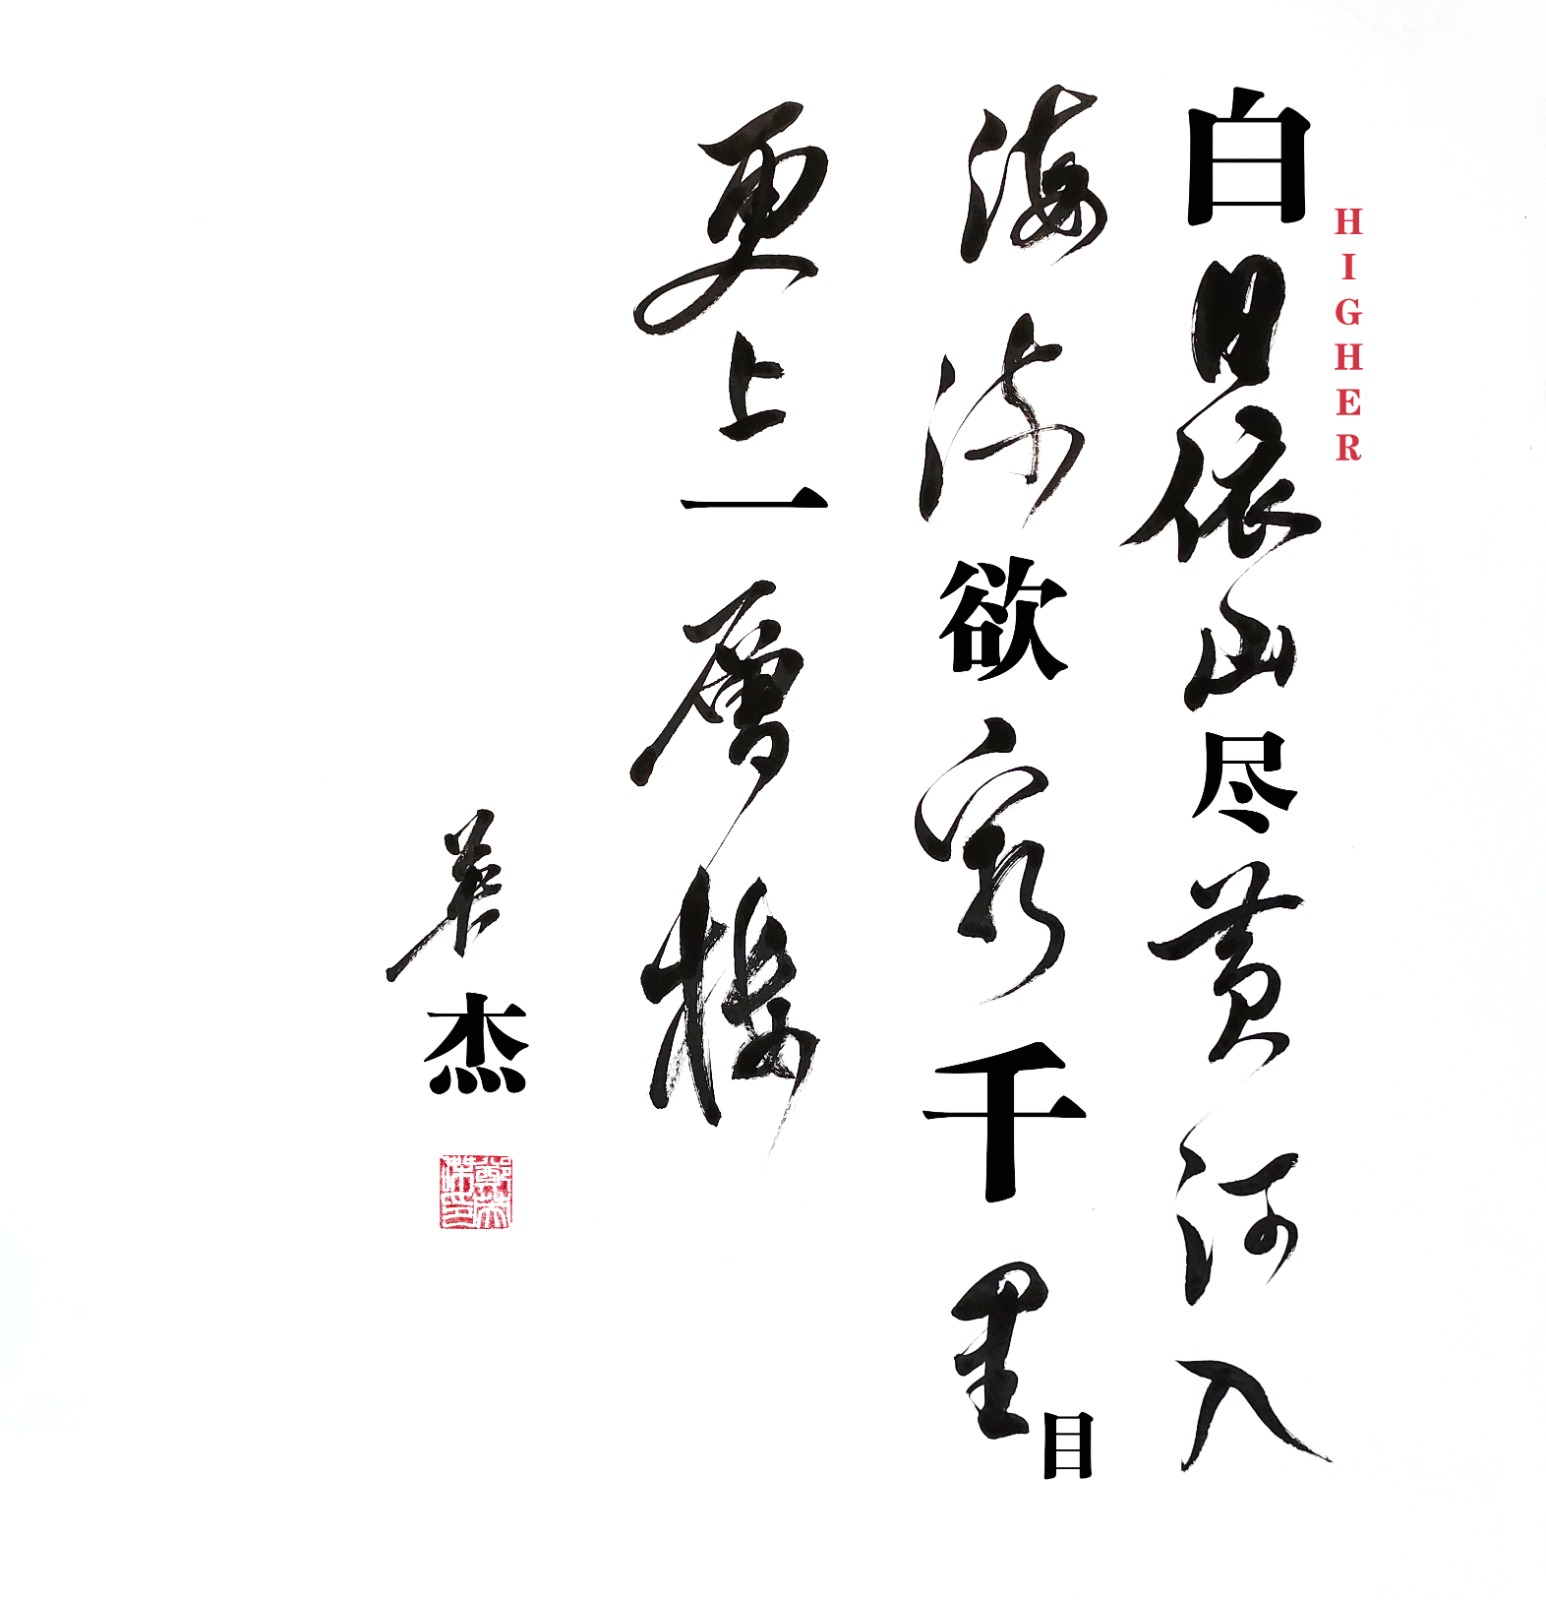 HIGHER
白日依山尽黄河入
海流欲穷千里目
更上一層楼
英杰